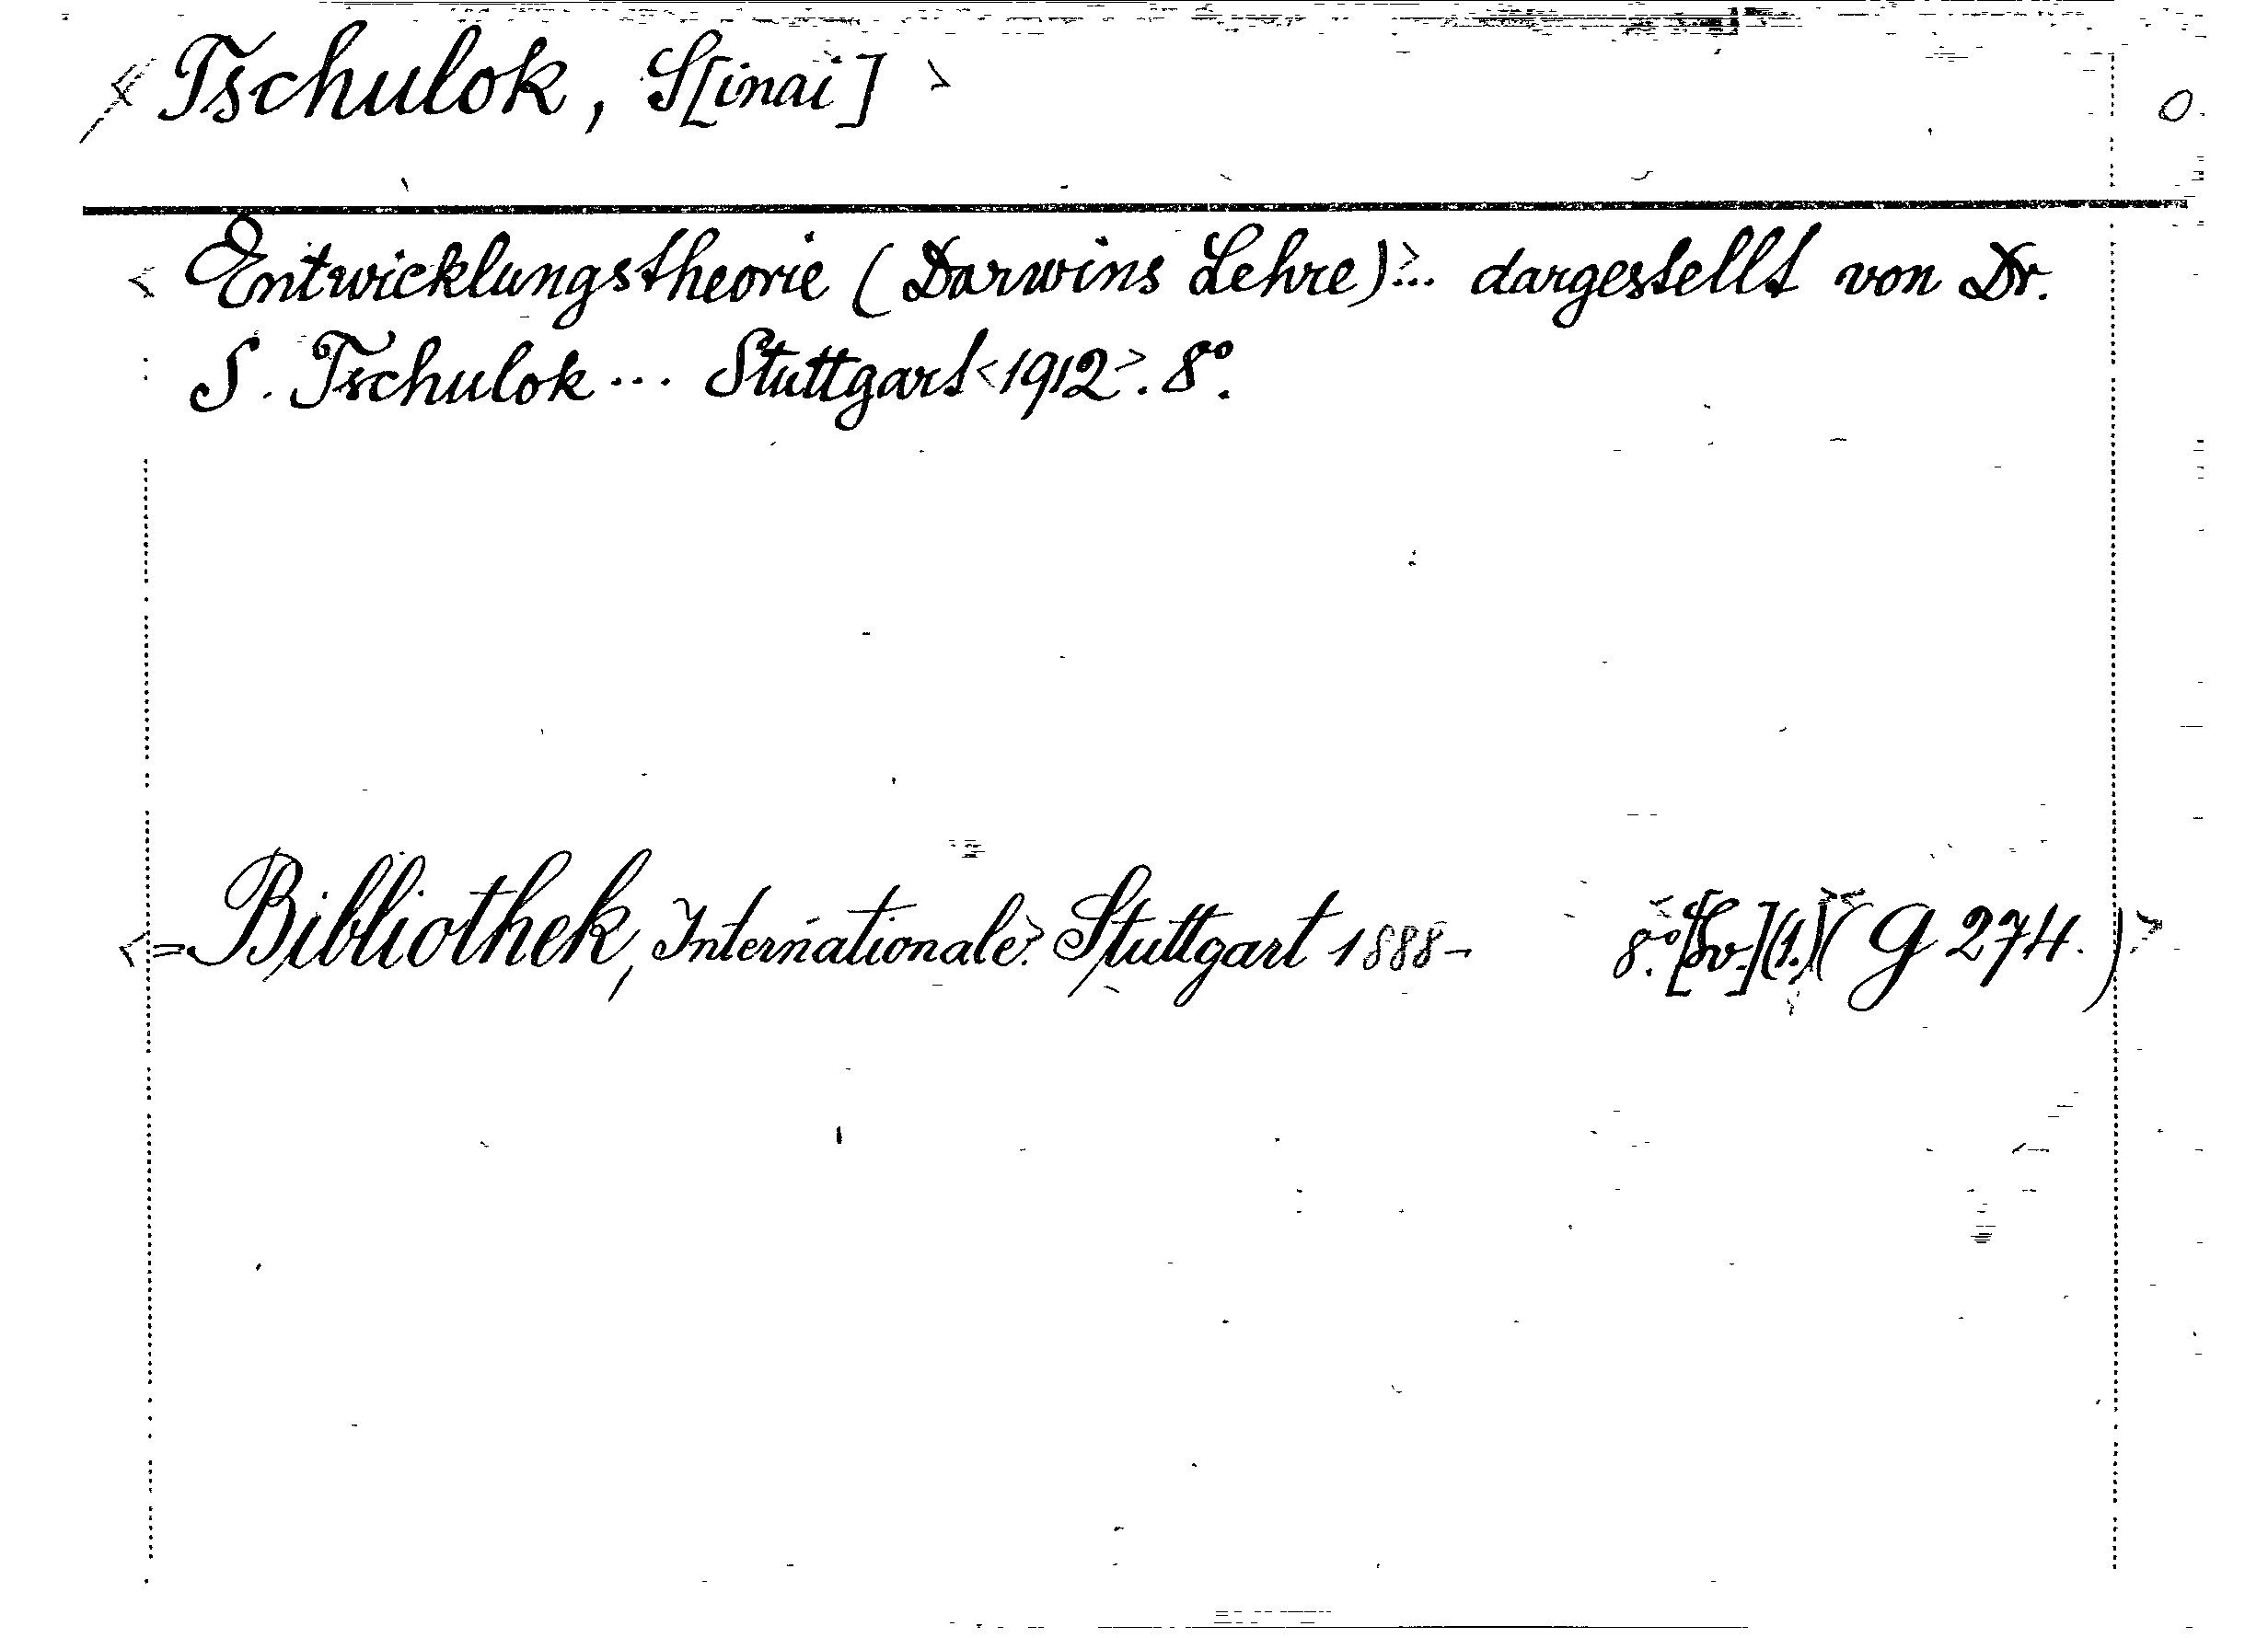 < Tschulok, S[inai] > 0
< Entwicklungstheorie (Darwins Lehre)>... dargestellt von Dr.
S. Tschulok... Stuttgart <1912>. 8°.
<= Bibliothek, Internationale> Stuttgart 1888- 8°. (1.) (G 274.)>